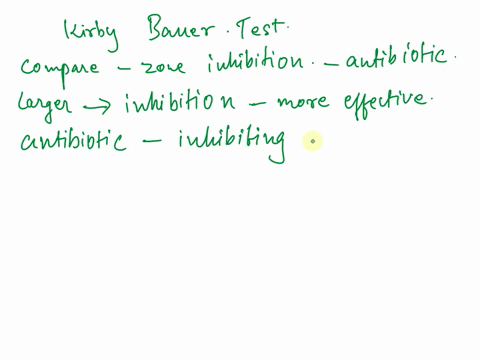 Kirby Bauer Test.
compare - zone inhibition. - antibiotic.
larger → inhibition - more effective.
antibiotic - inhibiting